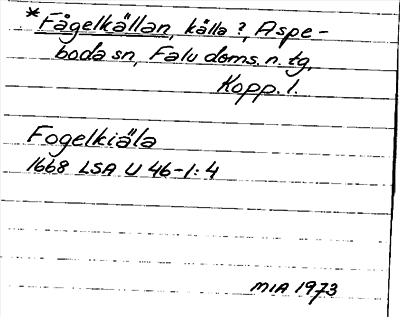 *Fågelkällan, källa?, Aspe-
boda sn, Falu doms. n. tg,
Kopp. l.
Fogelkiäla
1668 LSA U 46-1:4
MIA 1973